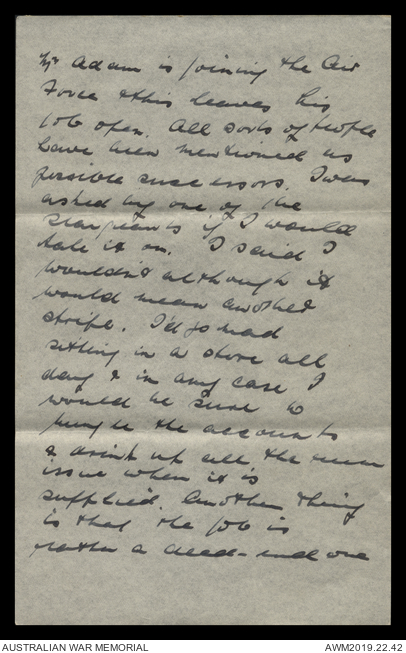 Mr Adam is joining the Air
Force & this leaves his
job open. All sorts of people
have been mentioned as
possible successors. I was
asked by one of the
sergeants if I would
take it on. I said I
wouldn't although it
would mean another
stripe. I'd go mad
sitting in a store all
day & in any case I
would be sure to
bungle the accounts
& drink up all the rum
issue when it is
supplied. Another thing
is that the job is
rather a dead-end one
AUSTRALIAN WAR MEMORIAL
AWM2019.22.42